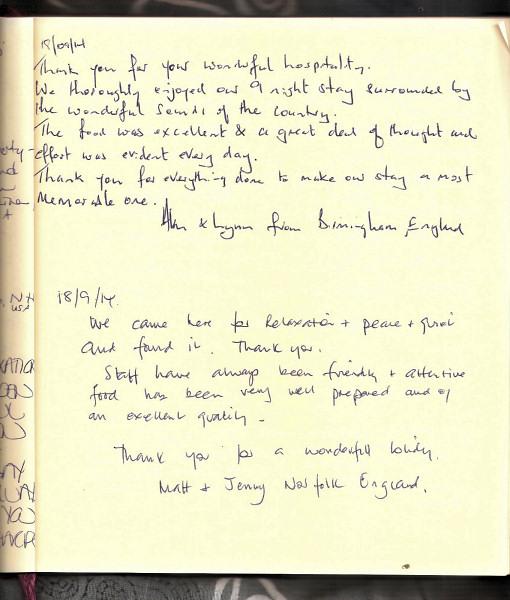 18/09/14
Thank you for your wonderful hospitality.
We thoroughly enjoyed our 9 night stay surrounded by
the wonderful sounds of the country.
The food was excellent & a great deal of thought and
effort was evident every day.
Thank you for everything done to make our stay a most
memorable one.
& Lynn from Birmingham, England
18/9/14.
We came here for Relaxation + peace + quiet
and found it. Thank you.
Staff have always been friendly + attentive
food has been very well prepared and of
an excellent quality -
Thank you for a wonderful holiday.
Matt + Jenny Norfolk England.